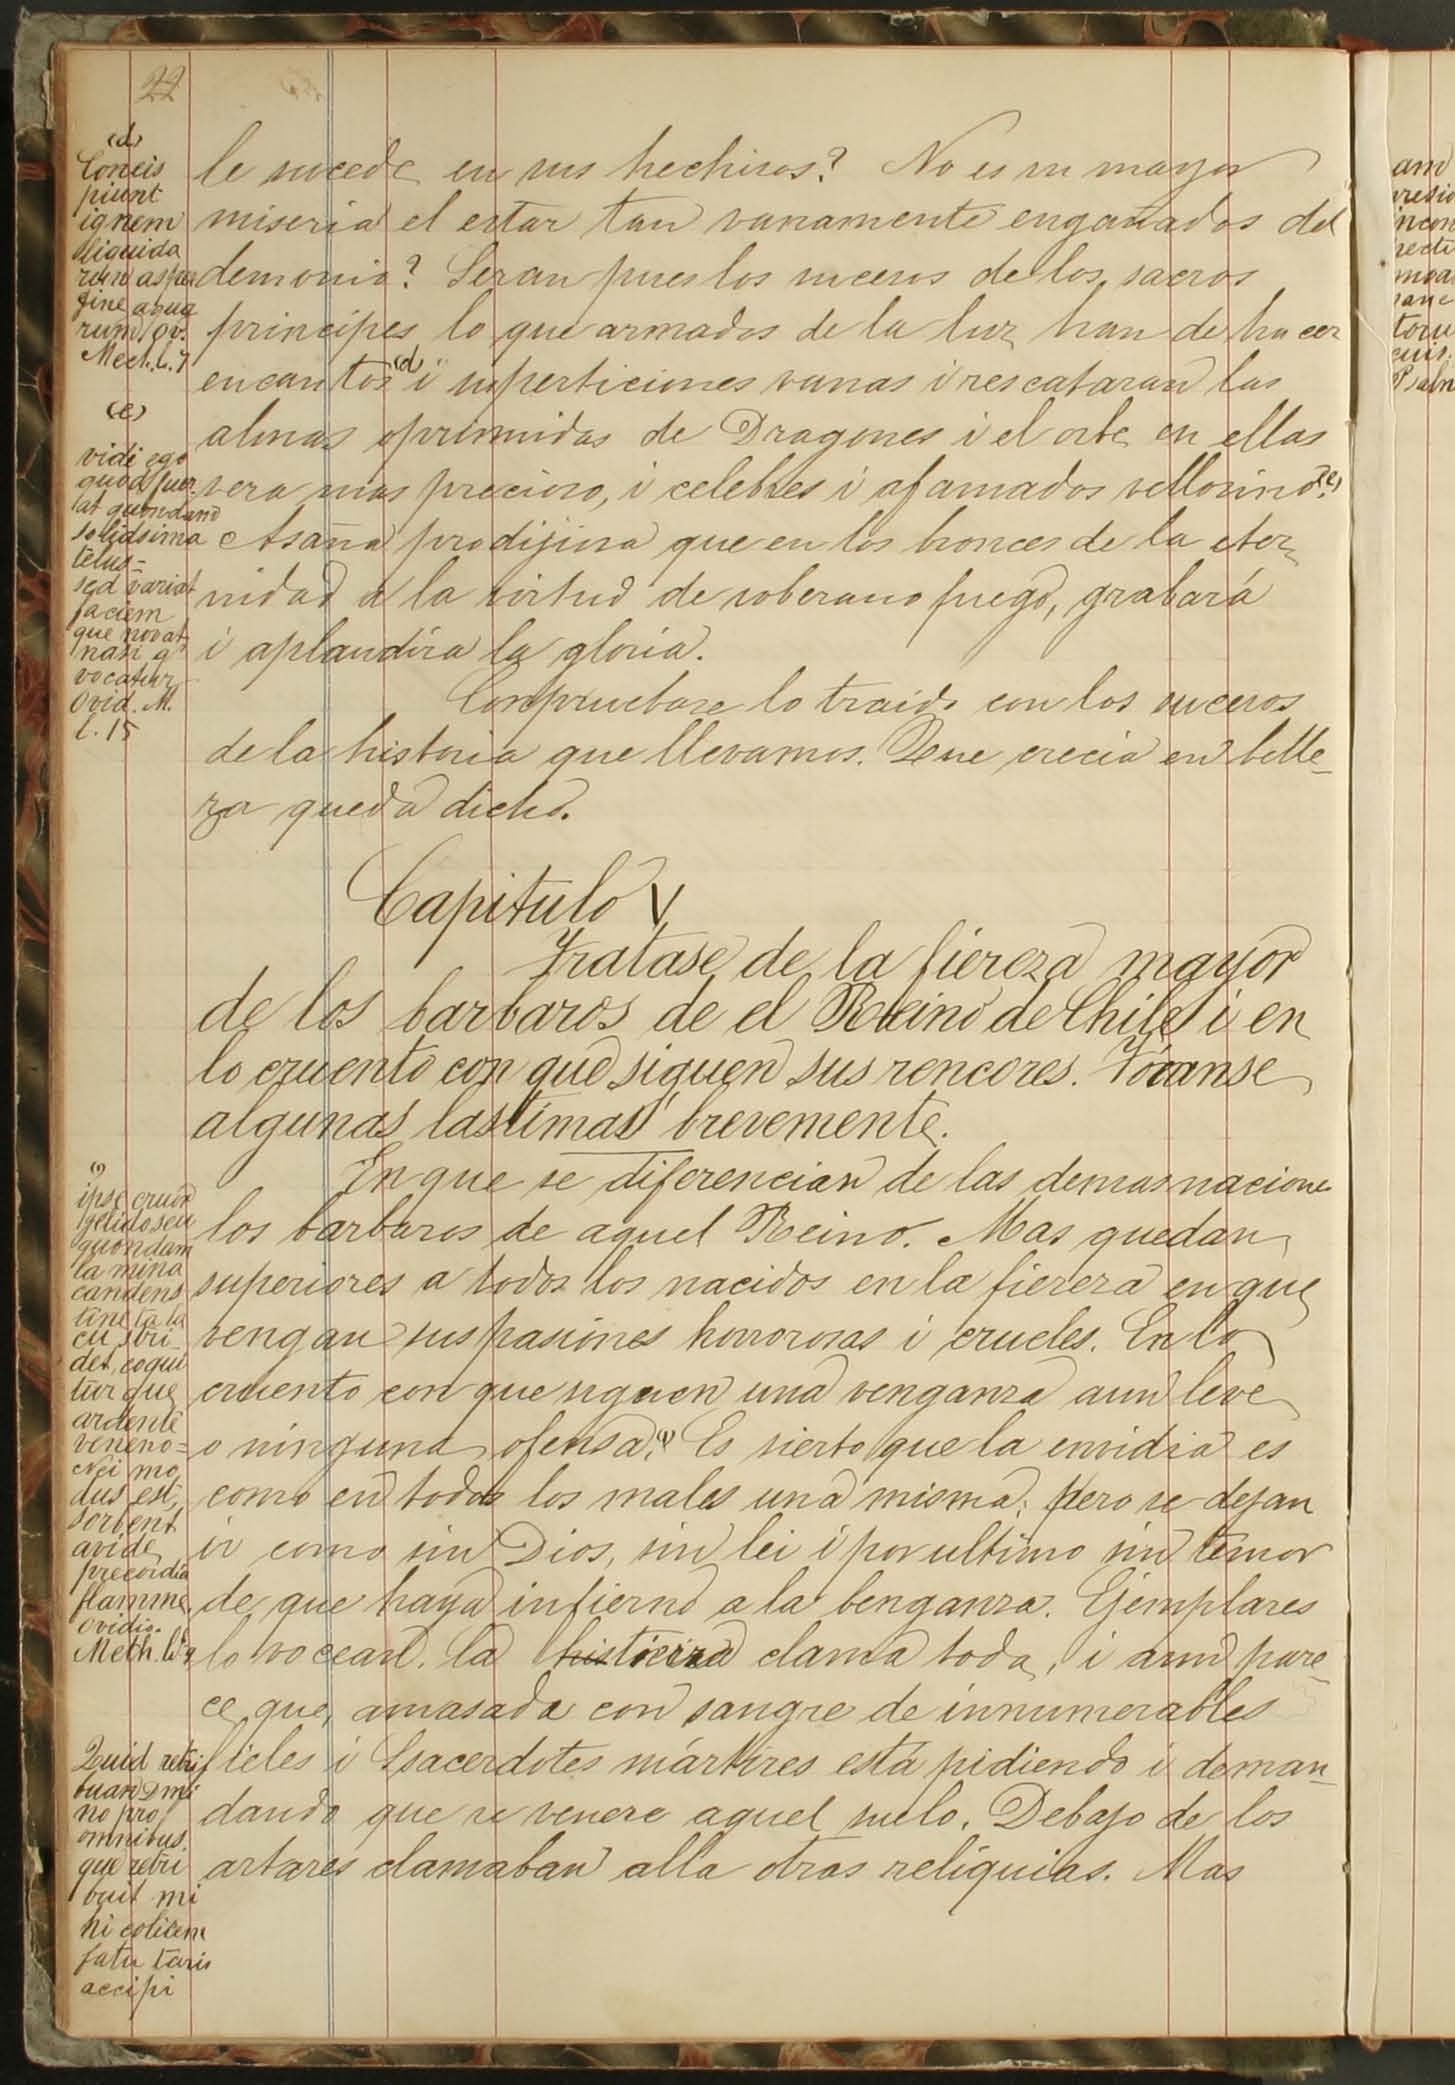 22
(d)
Concis
piunt
ignem
liquida
rum asper
gine aqua
rum/ov.
Meth. L. 7
(e)
vidi ego
quod fuer
at quondam
solidsima
telus=
sed variat
faciem
que novat
nasi q
vocatur
Ovid. M.
l. 15
le sucede en sus hechisos? No es su mayor
miseria el estar tan vanamente engañados del
demonio? Seran pues los suceros de los sacros
principes lo que armados de la luz han de hacer
encantos (d) i superticiones vanas i rescataran las
almas oprimidas de Dragones i el orbe en ellas
vera mas precioso, i celebres i afamados vellosino? (e)
Asaña prodijiosa que en los bronces de la eter
nidad a la virtud de soberano fuego, grabará
i aplaudira la gloria.
Conpruebase lo traido con los suceros
de la historia que llevamos. Que crecia en belle-
za queda dicho.
Capitulo V
Tratase de la fiereza mayor
de los barbaros de el Reino de Chile i en
lo cruento con que siguen sus rencores. Tócanse
algunas lastimas brevemente.
(i)
ipse cruor
gelido seu
quondam
lamina
candens
tincta la
cu stri
det, coqui
tur que
ardente
veneno=
Nei mo
dus est,
sorbent
avide
precordia
flamme.
Ovidio.
Meth. L. 9
En que se diferencian de las demas nacione
los barbaros de aquel Reino. Mas quedan
superiores a todos los nacidos en la fiereza en que
vengan sus pasiones horrorosas i crueles. En lo
cruento con que siguen una venganza aun leve
o ninguna ofensa. (i) Es sierto que la envidia es
como en todos los males una misma; pero se dejan
ir como sin Dios, sin lei i por ultimo sin temor
de que haya infierno a la benganza. Ejemplares
lo vocean. la historia clama toda, i aun pare-
ce que, amasada con sangre de innumerables
fieles i Sacerdotes mártires está pidiendo i deman-
dando que se venere aquel suelo. Debajo de los
artares clamaban alla otras reliquias. Mas
Quid retri
buan Dmi
no pro
omnibus.
que retri
buit mi
hi colicem
satu taris
accipi
am
Psalm